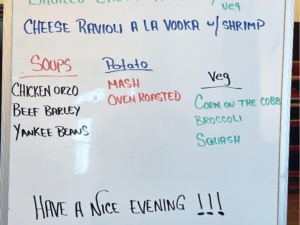 Veg
CHEESE RAVIOLI A LA VODKA W/ SHRIMP
SOUPS
CHICKEN ORZO
BEEF BARLEY
YANKEE BEANS
Potato
MASH
OVEN ROASTED
Veg
CORN ON THE COBB
BROCCOLI
SQUASH
HAVE A NICE EVENING !!!